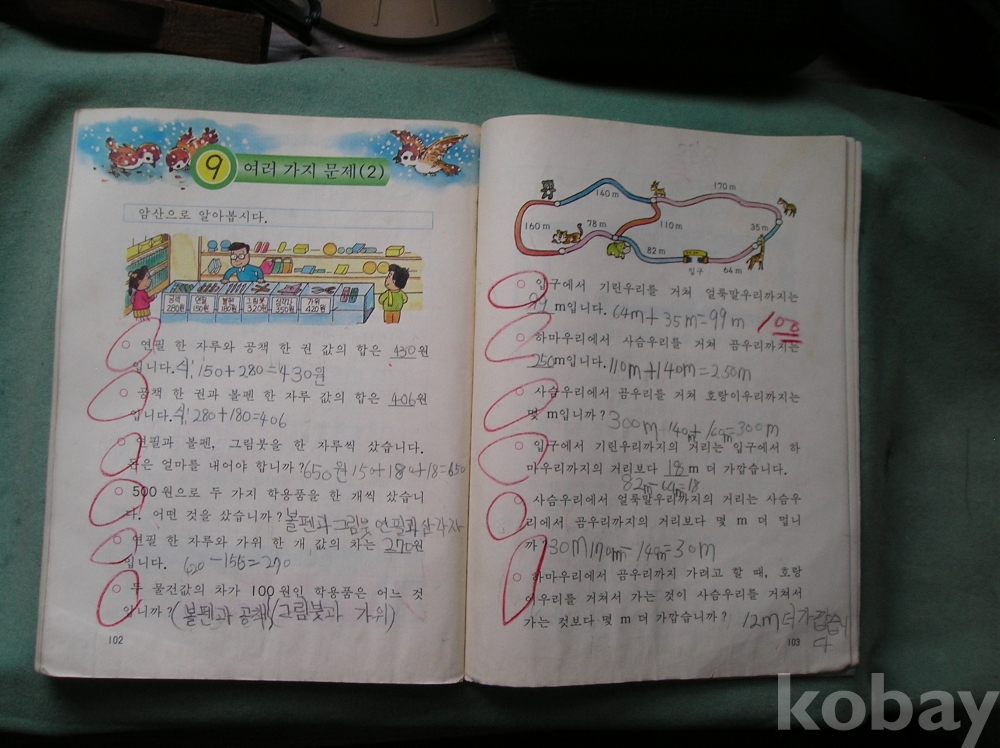 9 여러 가지 문제(2)
암산으로 알아봅시다.
공책 280원
연필 150원
볼펜 180원
그림붓 320원
삼각자 350원
가위 420원
연필 한 자루와 공책 한 권 값의 합은 430원
입니다. 식: 150+280=430원
공책 한 권과 볼펜 한 자루 값의 합은 406원
입니다. 식: 280+180=406
연필과 볼펜, 그림붓을 한 자루씩 샀습니다.
돈은 얼마를 내어야 합니까? 650원
500원으로 두 가지 학용품을 한 개씩 샀습니
다. 어떤 것을 샀습니까? 볼펜과 그림붓 연필과 삼각자
연필 한 자루와 가위 한 개 값의 차는 270원
입니다. 420-155=270
두 물건값의 차가 100원인 학용품은 어느 것
입니까? (볼펜과 공책) (그림붓과 가위)
102
140 m
170 m
160 m
78 m
110 m
35 m
82 m
입구
64 m
입구에서 기린우리를 거쳐 얼룩말우리까지는
99 m입니다. 64m+35m=99m
100
하마우리에서 사슴우리를 거쳐 곰우리까지는
250m입니다. 110m+140m=250m
사슴우리에서 곰우리를 거쳐 호랑이우리까지는
몇 m입니까? 300m 140m+160m=300m
입구에서 기린우리까지의 거리는 입구에서 하
마우리까지의 거리보다 18 m 더 가깝습니다.
82m-64m=18
사슴우리에서 얼룩말우리까지의 거리는 사슴우
리에서 곰우리까지의 거리보다 몇 m 더 멉니
까? 30m 170m-140m=30m
하마우리에서 곰우리까지 가려고 할 때, 호랑
이우리를 거쳐서 가는 것이 사슴우리를 거쳐서
가는 것보다 몇 m 더 가깝습니까? 12m 더 가깝습니
다
103
kobay